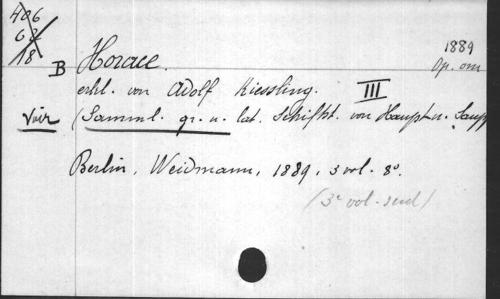 406
62
18
B
Horace.
1889
Op. om
erkl. von Adolf Kiessling.
III
Voir
(Samml. gr. u. lat. Schiftst. von Haupt u. Saupp
Berlin, Weidmann, 1889, 3 vol. 8°.
(3e vol. seul)